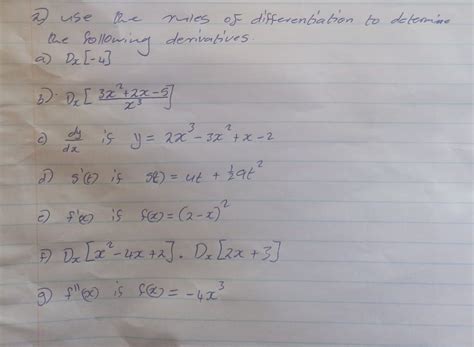 2) use the rules of differentiation to determine
the following derivatives.
a) Dx[-4]
b) Dx[(3x²+2x-5)/x³]
c) dy/dx if y = 2x³-3x²+x-2
d) s'(t) if s(t) = ut + ½at²
e) f'(x) if f(x) = (2-x)²
f) Dx[x²-4x+2] . Dx[2x+3]
g) f''(x) if f(x) = -4x³